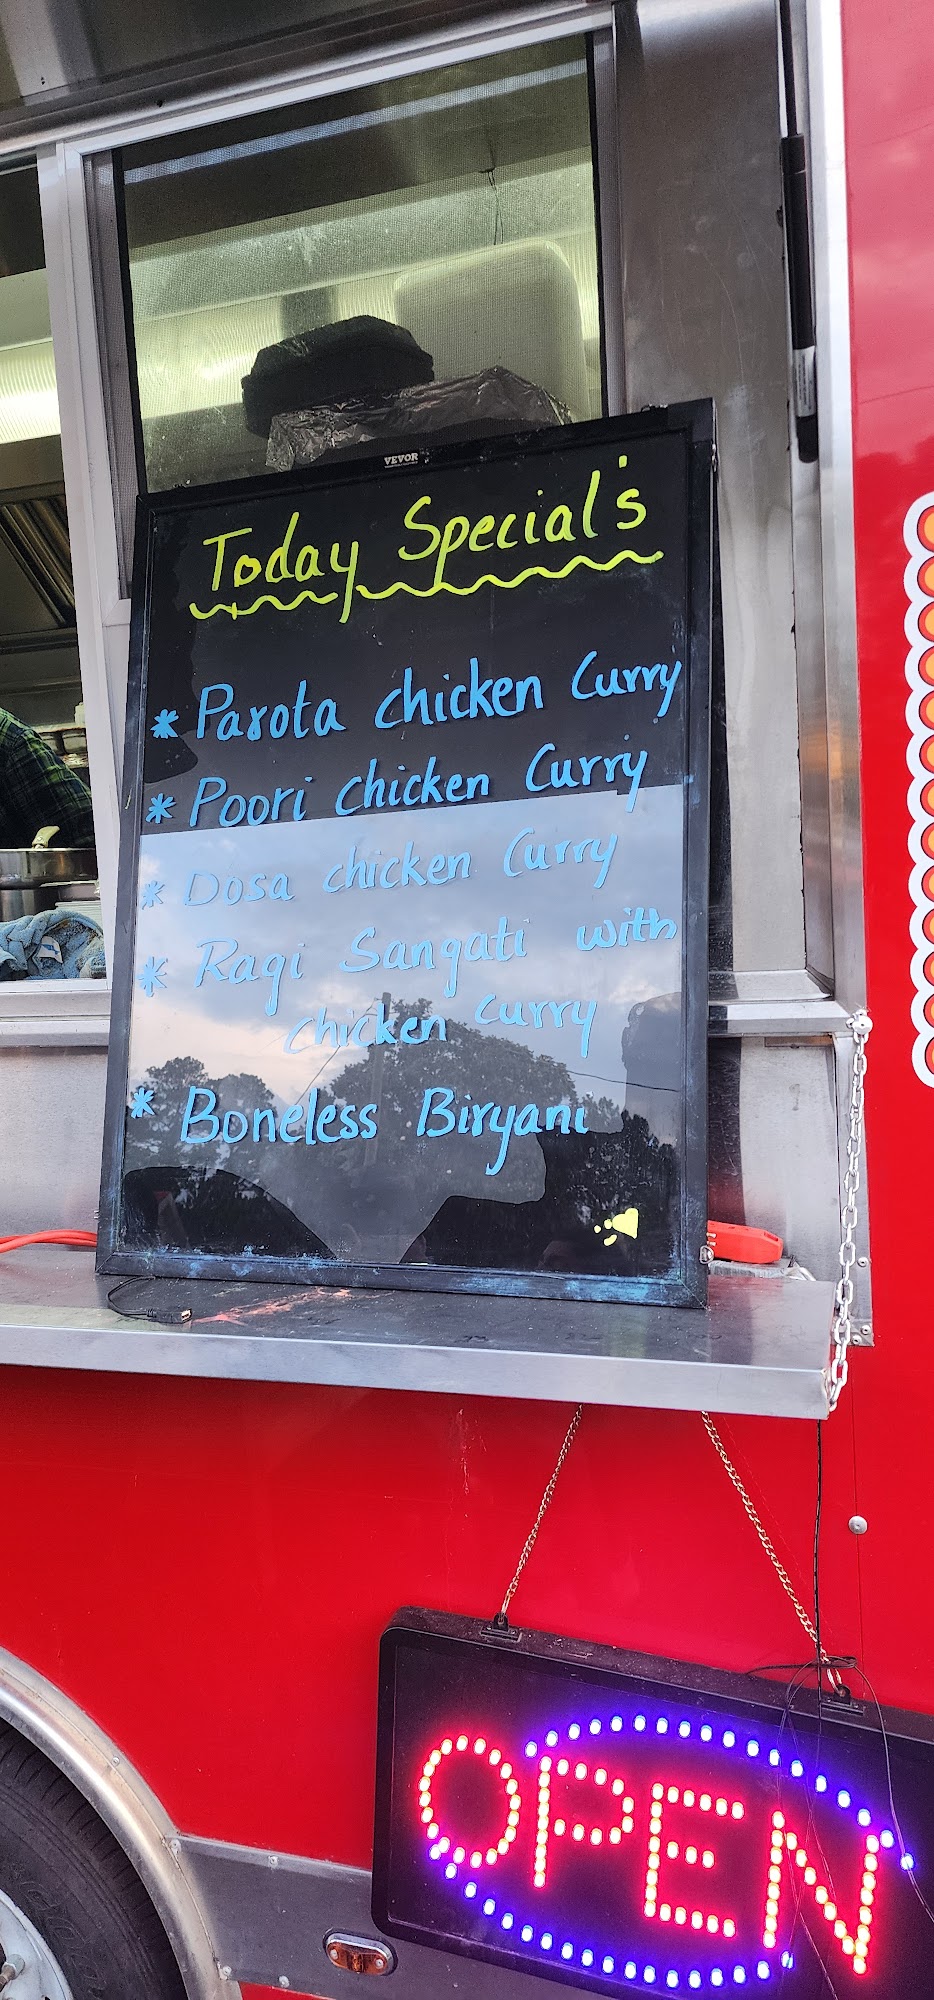 VEVOR
Today Special's
* Parota chicken Curry
* Poori chicken Curry
* Dosa chicken Curry
* Ragi Sangati with
chicken curry
* Boneless Biryani
OPEN